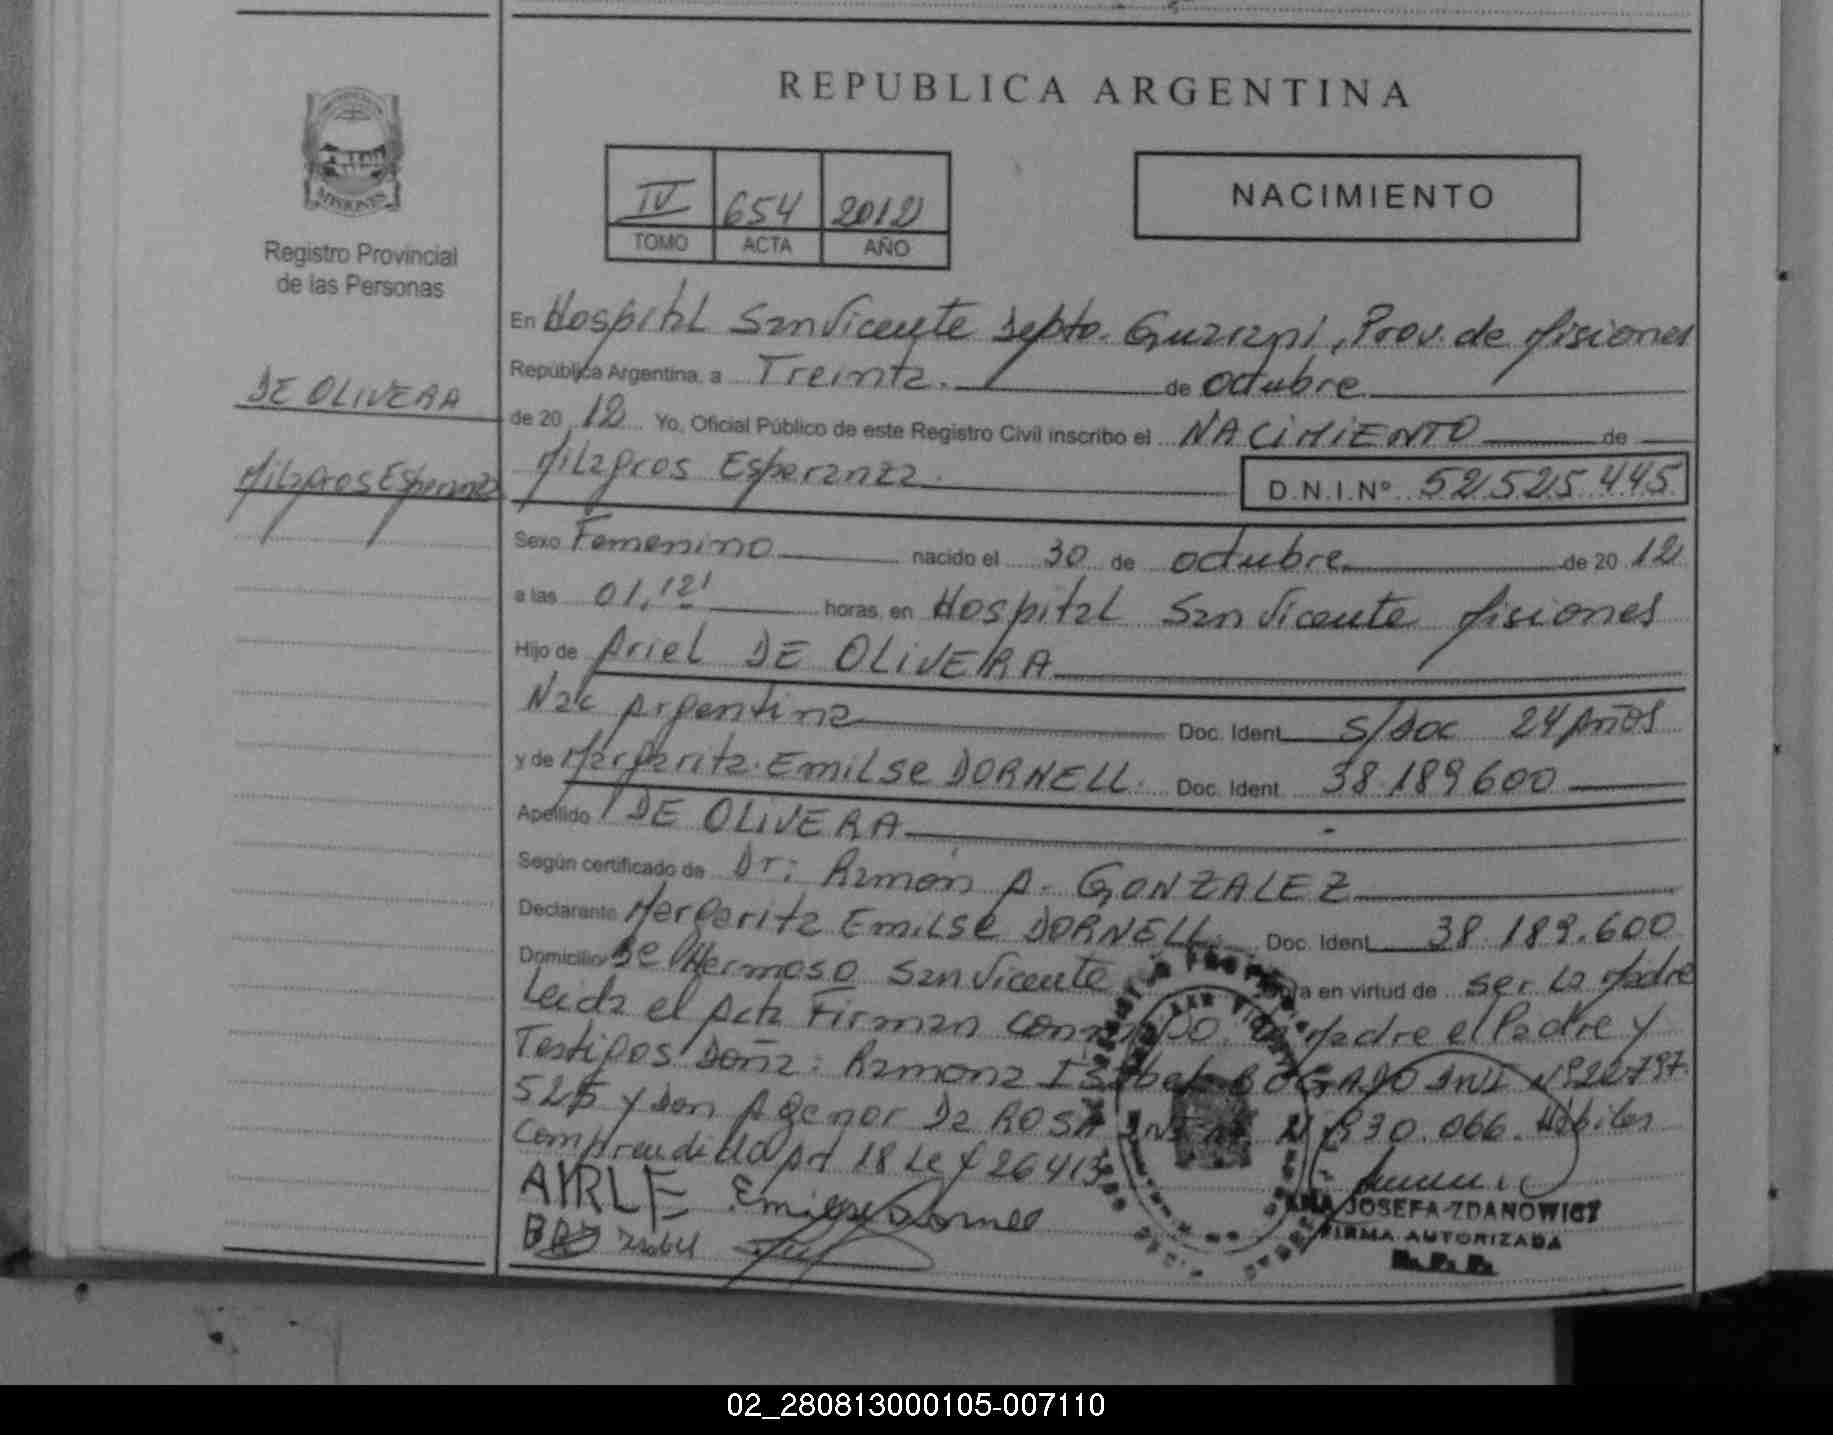 REPUBLICA ARGENTINA
IV 654 2012
TOMO ACTA AÑO
NACIMIENTO
MISIONES
Registro Provincial
de las Personas
DE OLIVERA
Milagros Esperanza
En Hospital San Vicente Depto. Guarani, Prov. de Misiones
República Argentina, a Treinta. de octubre
de 20 12 Yo, Oficial Público de este Registro Civil inscribo el NACIMIENTO de
Milagros Esperanza. D.N.I.Nº 52.525.445
Sexo Femenino nacido el 30 de octubre de 20 12
a las 01,12' horas, en Hospital San Vicente Misiones
Hijo de Ariel DE OLIVERA
Nac Argentina Doc. Ident. s/Doc 24 Años
y de Margarita Emilse DORNELL. Doc. Ident. 38.189600
Apellido DE OLIVERA
Según certificado de Dr: Ramón A. GONZALEZ
Declarante Margarita Emilse DORNELL. Doc. Ident. 38.189.600
Domicilio Bº Hermoso San Vicente en virtud de ser la Madre
Leida el Acta Firman la Madre el Padre y
Testigos Doña: Ramona Isabel BOGADO DNI Nº22797.
525 y Don Agenor Da ROSA 30.066. Hábiles
Comprendido Art 18 Ley 26413
AIRLE Emilse Dornell
Isabel
ANA JOSEFA ZDANOWICZ
FIRMA AUTORIZADA
R.P.P.
02_280813000105-007110